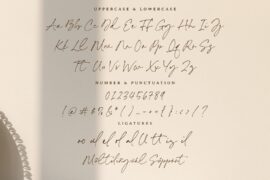 UPPERCASE & LOWERCASE
Aa Bb Cc Dd Ee Ff Gg Hh Ii Jj
Kk Ll Mm Nn Oo Pp Qq Rr Ss
Tt Uu Vv Ww Xx Yy Zz
NUMBER & PUNCTUATION
0123456789
LIGATURES
Multilingual Support